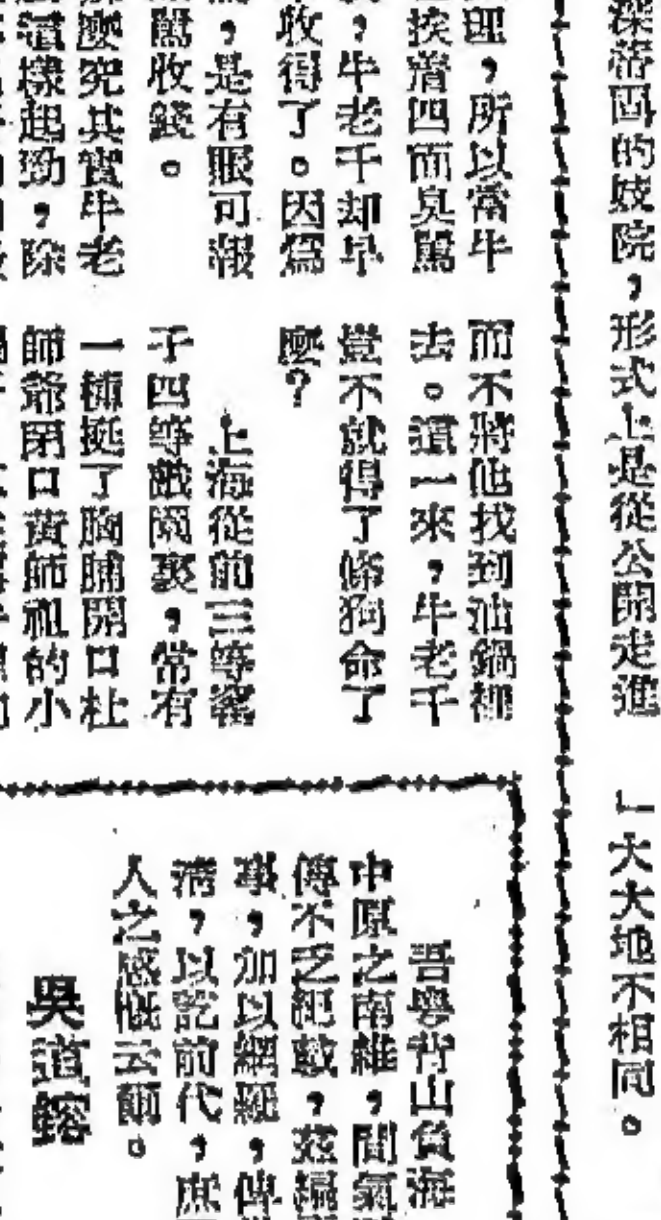 深落固的妓院，形式上是從公開走進
一大大地不相同。
理，所以當牛
挨着四面臭罵
，牛老千却早
收得了。因爲
，是有眼可報
罵收錢。
麼究其實牛老
這樣起勁，除
而不將他找到油鍋裡
去。這一來，牛老千
豈不就得了條狗命了
麼？
上海從前三等窰
子四等戲園裏，常有
一種挺了胸脯開口杜
師爺閉口黃師祖的小
吾粵背山負海
中原之南維，間氣
傳不乏紀載，茲編
事，加以網羅，傳
清，以訖前代，庶
人之感慨云爾。
吳道鎔